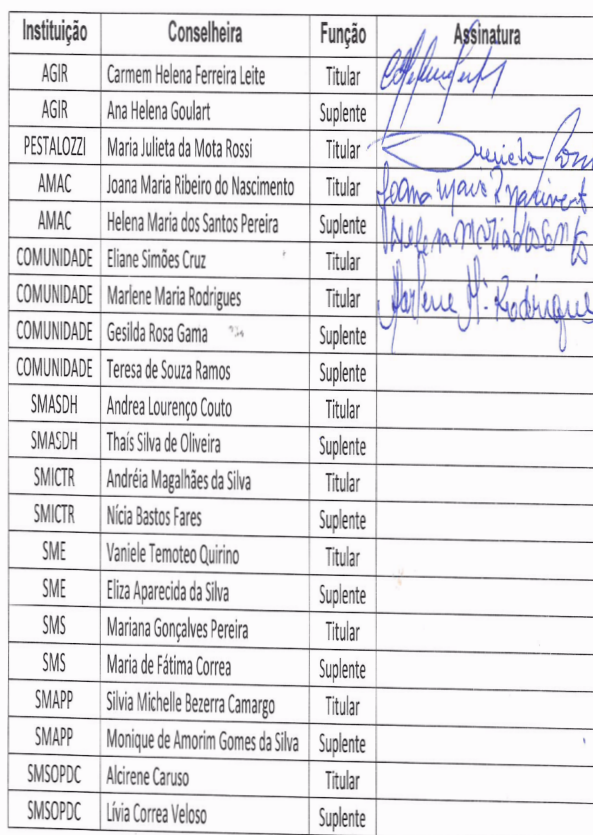 Instituição Conselheira Função Assinatura
AGIR Carmem Helena Ferreira Leite Titular
AGIR Ana Helena Goulart Suplente
PESTALOZZI Maria Julieta da Mota Rossi Titular
AMAC Joana Maria Ribeiro do Nascimento Titular Joana Maria R
AMAC Helena Maria dos Santos Pereira Suplente Helena Maria
COMUNIDADE Eliane Simões Cruz Titular
COMUNIDADE Marlene Maria Rodrigues Titular Marlene Mª Rodrigues
COMUNIDADE Gesilda Rosa Gama Suplente
COMUNIDADE Teresa de Souza Ramos Suplente
SMASDH Andrea Lourenço Couto Titular
SMASDH Thaís Silva de Oliveira Suplente
SMICTR Andréia Magalhães da Silva Titular
SMICTR Nícia Bastos Fares Suplente
SME Vaniele Temoteo Quirino Titular
SME Eliza Aparecida da Silva Suplente
SMS Mariana Gonçalves Pereira Titular
SMS Maria de Fátima Correa Suplente
SMAPP Silvia Michelle Bezerra Camargo Titular
SMAPP Monique de Amorim Gomes da Silva Suplente
SMSOPDC Alcirene Caruso Titular
SMSOPDC Lívia Correa Veloso Suplente